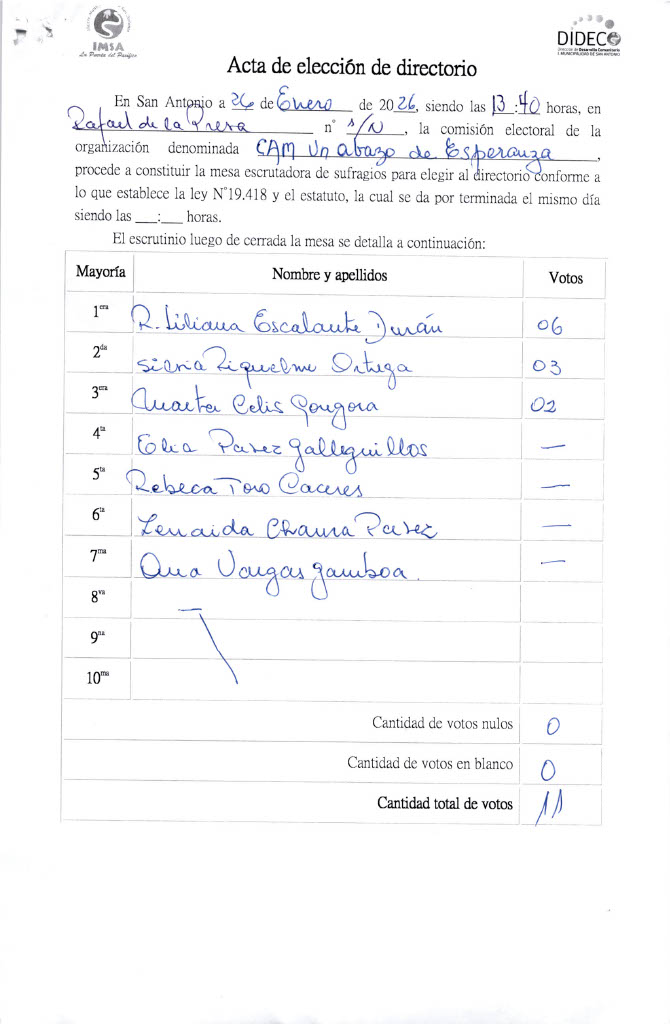 IMSA
La Puerta del Pacífico
DIDECO
Dirección de Desarrollo Comunitario
I. MUNICIPALIDAD DE SAN ANTONIO
Acta de elección de directorio
En San Antonio a 26 de Enero de 2026, siendo las 13:40 horas, en
Rafael de la Presa n° S/N, la comisión electoral de la
organización denominada CAM Un abazo de Esperanza,
procede a constituir la mesa escrutadora de sufragios para elegir al directorio conforme a
lo que establece la ley N°19.418 y el estatuto, la cual se da por terminada el mismo día
siendo las ___:___ horas.
El escrutinio luego de cerrada la mesa se detalla a continuación:
Mayoría Nombre y apellidos Votos
1era R. Liliana Escalante Durán 06
2da Silvia Riquelme Ortega 03
3era Marta Celis Gongora 02
4ta Elia Parez Galleguillos —
5ta Rebeca Toro Caceres —
6ta Zenaida Chama Parez —
7ma Ana Vargas Gamboa. —
8va
9na
10ma
Cantidad de votos nulos 0
Cantidad de votos en blanco 0
Cantidad total de votos 11